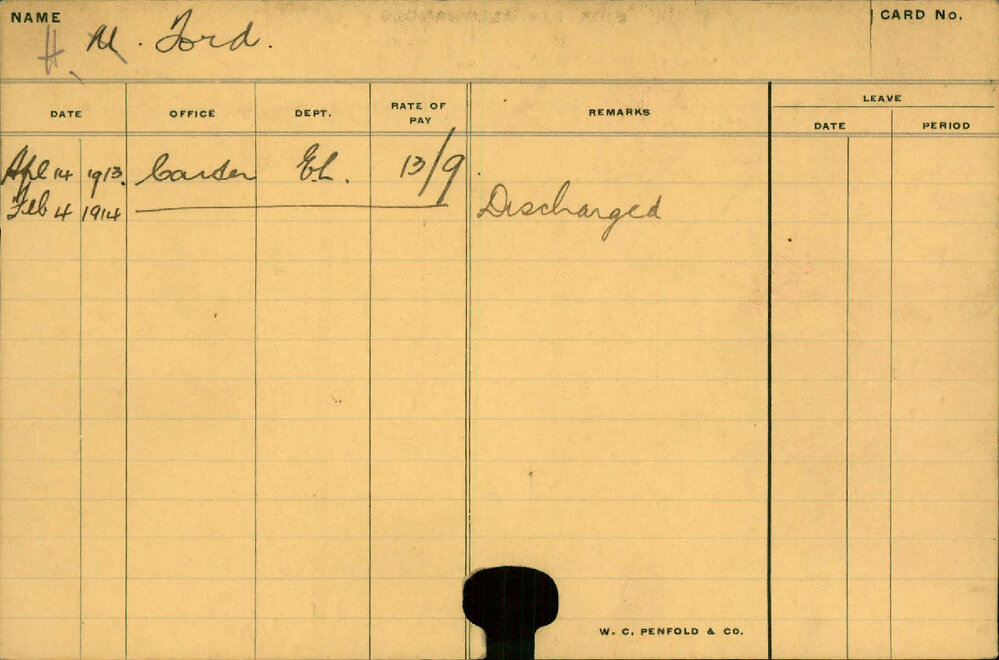 NAME
CARD No.
H. M. Ford.
LEAVE
DATE OFFICE DEPT. RATE OF PAY REMARKS DATE PERIOD
Apl 14 1913. Carter E.L. 13/9.
Feb 4 1914 Discharged
W. C. PENFOLD & CO.